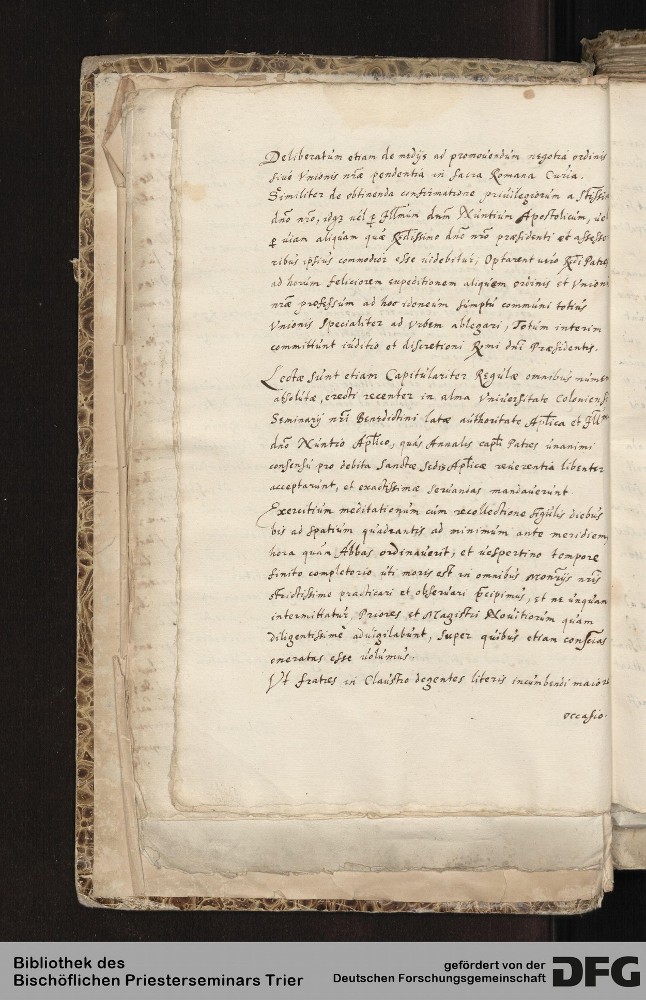 Deliberatum etiam de medijs ad promouendum negotia ordinis
siue Vnionis nrae pendentia in sacra Romana Curia.
Similiter de obtinenda confirmatione priuilegiorum a
dno nro, idq3 uel p Illmum dnm Nuntium Apostolicum, ue
p uiam aliquam quae Rdissimo dno nro praesidenti et assesso
ribus ipsius commodior esse uidebitur; Optarent uero Rdi Patres
ad horum feliciorem expeditionem aliquem ordinis et Vnion
nrae professum ad hoc idoneum sumptu communi totius
Vnionis specialiter ad Vrbem ablegari, Totum interim
committunt iudicio et discretioni Rmi dni Praesidentis.
Lectae sunt etiam Capitulariter Regulae omnibus numer
absolutae, erecti recenter in alma Vniuersitate Coloniens
Seminarij nri Benedictini latae authoritate Aplica et Illmo
dno Nuntio Aplico, quas Annalis capli Patres unanimi
consensu pro debita Sanctae Sedis Aplicae reuerentia libenter
acceptarunt, et exactissimae seruandas mandauerunt
Exercitium meditationum cum recollectione sigulis diebus
bis ad spatium quadrantis ad minimum ante meridiem
hora quam Abbas ordinauerit, et uespertino tempore
finito completorio uti moris est in omnibus Monrijs nris
strictissimo practicari et obseruari pcipimus, et ne unquam
intermittatur, Priores et Magistri Nouitiorum quam
diligentissime aduigilabunt, super quibus etiam conscias
oneratas esse uolumus.
Vt fratres in Claustro degentes literis incumbendi maiore
occasio-
Bibliothek des
Bischöflichen Priesterseminars Trier
gefördert von der
Deutschen Forschungsgemeinschaft
DFG